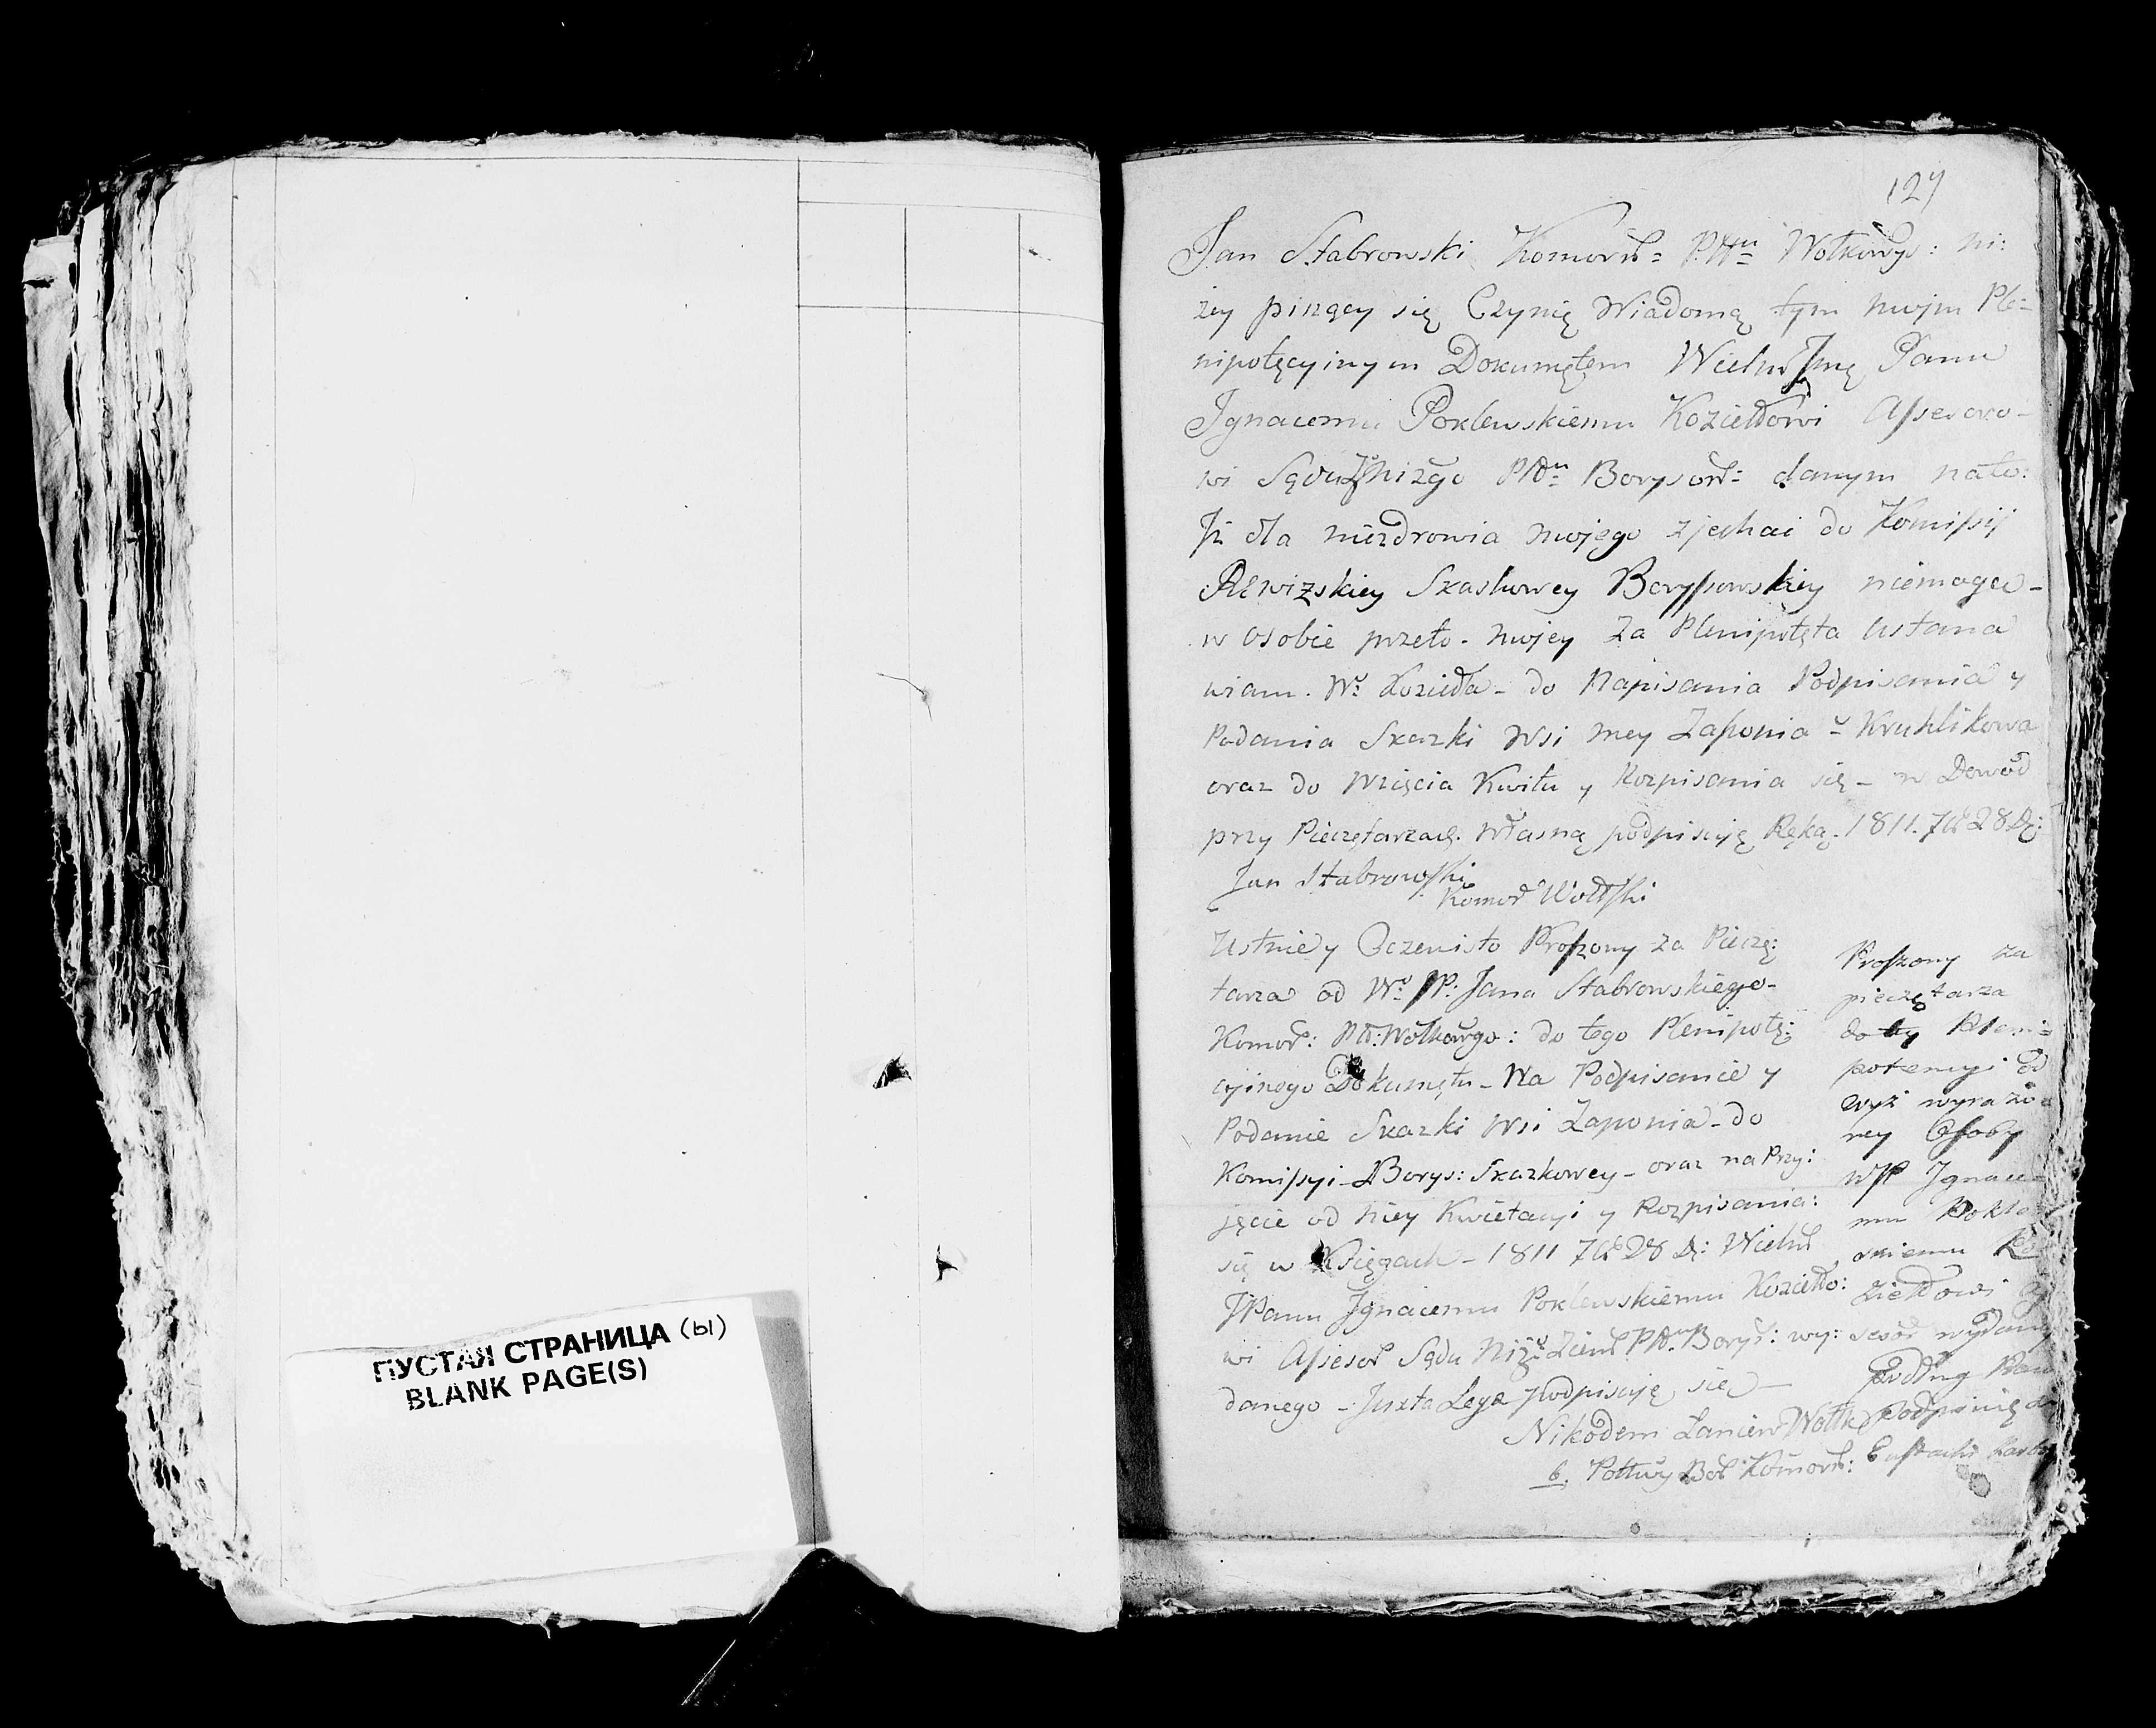 ПУСТАЯ СТРАНИЦА (ы)
BLANK PAGE(S)
127
Jan Stabrowski Komor: Ptu Wołkowys: ni:
żey piszący się Czynię Wiadomą tym mojm Ple-
nipotęcyinym Dokumętem Wielm Jmę Panu
Jgnacemu Poklewskiemu Koziełłowi Assesoro-
wi Sądu Niżgo Pttu Borysow: danym na to:
Jż dla niezdrowia mojego zjechać do Komissij
Rewizskiey Skaskowey Boryssowskiey niemogąc-
w osobie przeto- mojey Za Plenipotęta Ustana
wiam. W. Koziełła- do Napisania Podpisania y
Podania Skazki Wsi mey Zaponia - Kruhlikowa
oraz do Wzięcia Kwitu y Rozpisania się- w Dowod
przy Pieczętarzach. Własną podpisuję Ręką. 1811. 7b 28 D:
Jan Stabrowski
Komor Wołkski
Ustnie y Oczewisto Proszony za Pieczę:
tarza od W: JP: Jana Stabrowskiego-
Komor: Ptt: Wołkowgo: do tego Plenipotę:
cyinego Dokumętu- Na Podpisanie y
Podanie Skazki Wsi Zaponia- do
Komissyi- Borys: Skazkowey- oraz na Przy:
jęcie od niey Kwietacyi y Rozpisania:
się w Księgach- 1811 7b 28 D: Wielm
JPanu Jgnacemu Poklewskiemu Koziełło:
wi Assesor Sądu Niż Ziem Ptt. Borys: wy:
danego - Juxta Lege podpisuję się-
Nikodem Łaniew Wołk
b. Połtwy Bor Komor:
Proszony za
pieczętarza
do tey Pleni=
potencyi od
wyż wyrażo
ney Osoby
WJP Jgnace-
mu Poklew
skiemu Ko
ziełłowi
sesor wydaney
podług Praw
Podpisuię
Eustachi